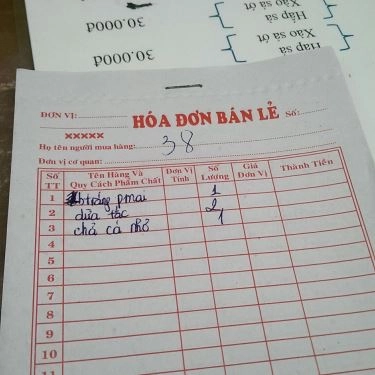 30.000đ
Hấp sả
Xào sả ớt
30.000đ
Hấp sả
Xào sả ớt
ĐƠN VỊ:
HÓA ĐƠN BÁN LẺ Số:
XXXXX
Họ tên người mua hàng: 38
Đơn vị cơ quan:
Số TT Tên Hàng Và Quy Cách Phẩm Chất Đơn Vị Tính Số Lượng Giá Đơn Vị Thành Tiền
1 btráng pmai 1
2 dừa tắc 2
3 chả cá nhỏ 1
4
5
6
7
8
9
10
11